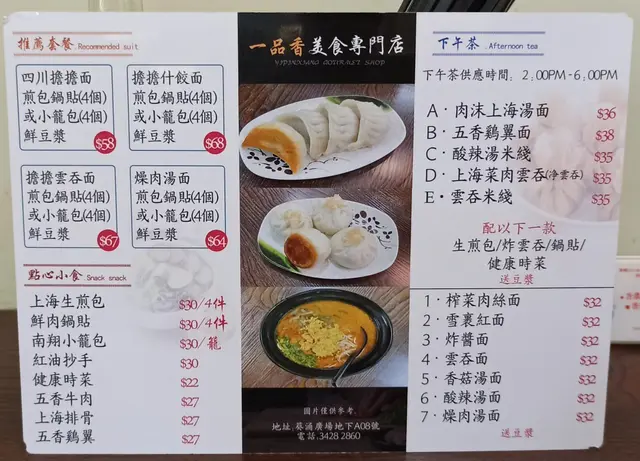 推薦套餐.Recommended suit
四川擔擔面
煎包鍋貼(4個)
或小籠包(4個)
鮮豆漿
$58
擔擔什餃面
煎包鍋貼(4個)
或小籠包(4個)
鮮豆漿
$68
擔擔雲吞面
煎包鍋貼(4個)
或小籠包(4個)
鮮豆漿
$67
燥肉湯面
煎包鍋貼(4個)
或小籠包(4個)
鮮豆漿
$64
點心小食.Snack snack
上海生煎包 $30/4件
鮮肉鍋貼 $30/4件
南翔小籠包 $30/籠
紅油抄手 $30
健康時菜 $22
五香牛肉 $27
上海排骨 $27
五香鷄翼 $27
一品香美食專門店
YIPINXIANG GOURMET SHOP
圖片僅供參考.
地址.葵涌廣場地下A08號
電話.3428 2860
下午茶.Afternoon tea
下午茶供應時間：2:00PM-6:00PM
A·肉沫上海湯面 $36
B·五香鷄翼面 $38
C·酸辣湯米綫 $35
D·上海菜肉雲吞(净雲吞) $35
E·雲吞米綫 $35
配以下一款
生煎包/炸雲吞/鍋貼/
健康時菜
送豆漿
1·榨菜肉絲面 $32
2·雪裏紅面 $32
3·炸醬面 $32
4·雲吞面 $32
5·香菇湯面 $32
6·酸辣湯面 $32
7·燥肉湯面 $32
送豆漿